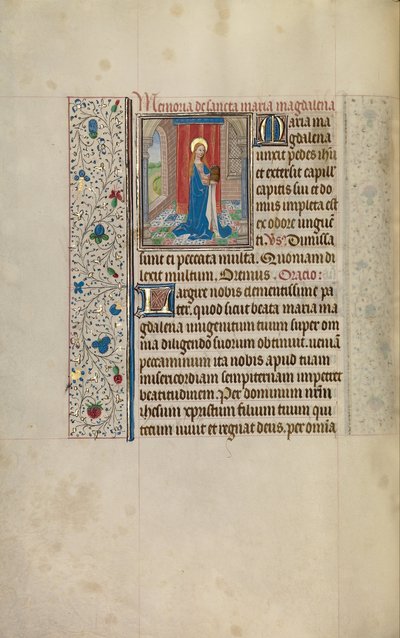 Memoria de sancta maria magdalena
Maria ma
gdalena
unxit pedes ihu
et extersit capill
capitis sui et do
mus impleta est
ex odore unguē
ti Vs. Dimissa
sunt ei peccata multa. Quoniam di
lexit multum. Oremus. Oratio:
Largire nobis clementissime pa
ter. quod sicut beata maria ma
gdalena unigenitum tuum super om
nia diligendo suorum obtinuit veniā
peccaminum ita nobis apud tuam
misericordiam sempiternam impetret
beatitudinem. Per dominum nrm̄
ihesum xpristum filium tuum qui
tecum uiuit et regnat deus. per omīa